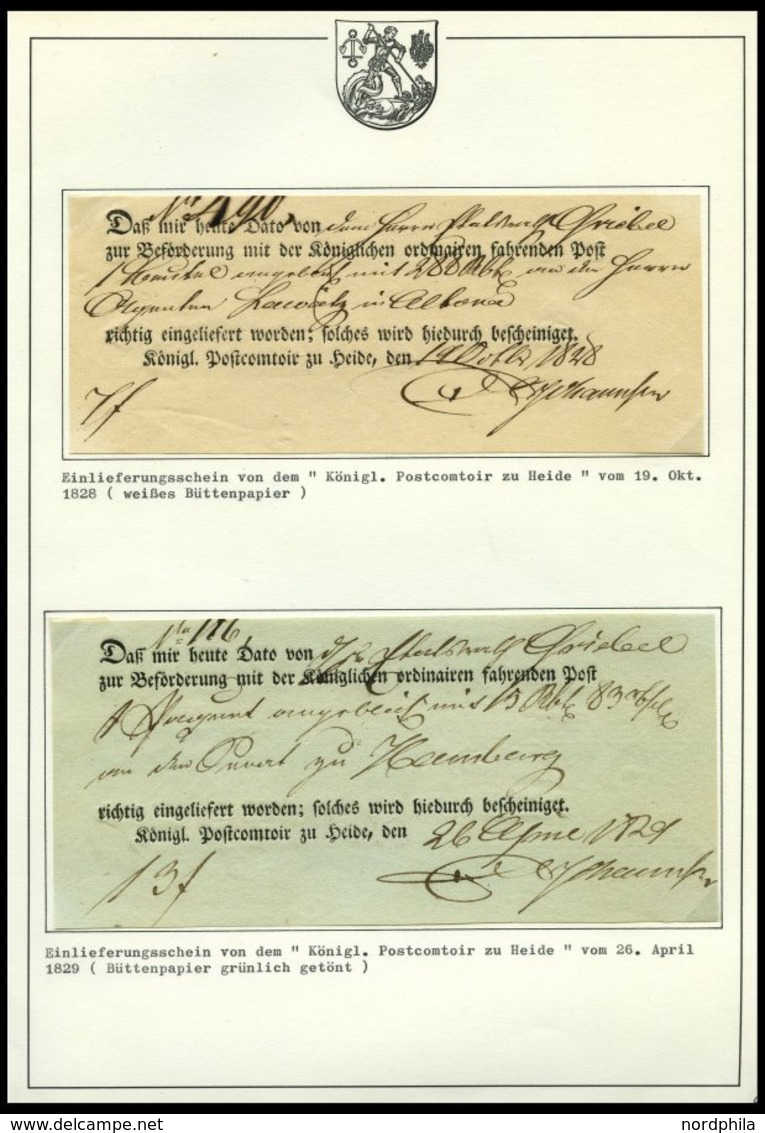 No 490,
Daß mir heute Dato von dem Herrn Griebel
zur Beförderung mit der Königlichen ordinairen fahrenden Post
1 Beutel angebl. mit 288 Rbt an den Herrn
Agenten in Altona
richtig eingeliefert worden; solches wird hiedurch bescheiniget.
Königl. Postcomtoir zu Heide, den 19 Octbr 1828
7 f Johannsen
Einlieferungsschein von dem " Königl. Postcomtoir zu Heide " vom 19. Okt.
1828 ( weißes Büttenpapier )
No 116,
Daß mir heute Dato von Griebel
zur Beförderung mit der Königlichen ordinairen fahrenden Post
mit 15 Rbt 83
an den zu Hamburg
richtig eingeliefert worden; solches wird hiedurch bescheiniget.
Königl. Postcomtoir zu Heide, den 26 April 1829
13 f Johannsen
Einlieferungsschein von dem " Königl. Postcomtoir zu Heide " vom 26. April
1829 ( Büttenpapier grünlich getönt )
nordphila